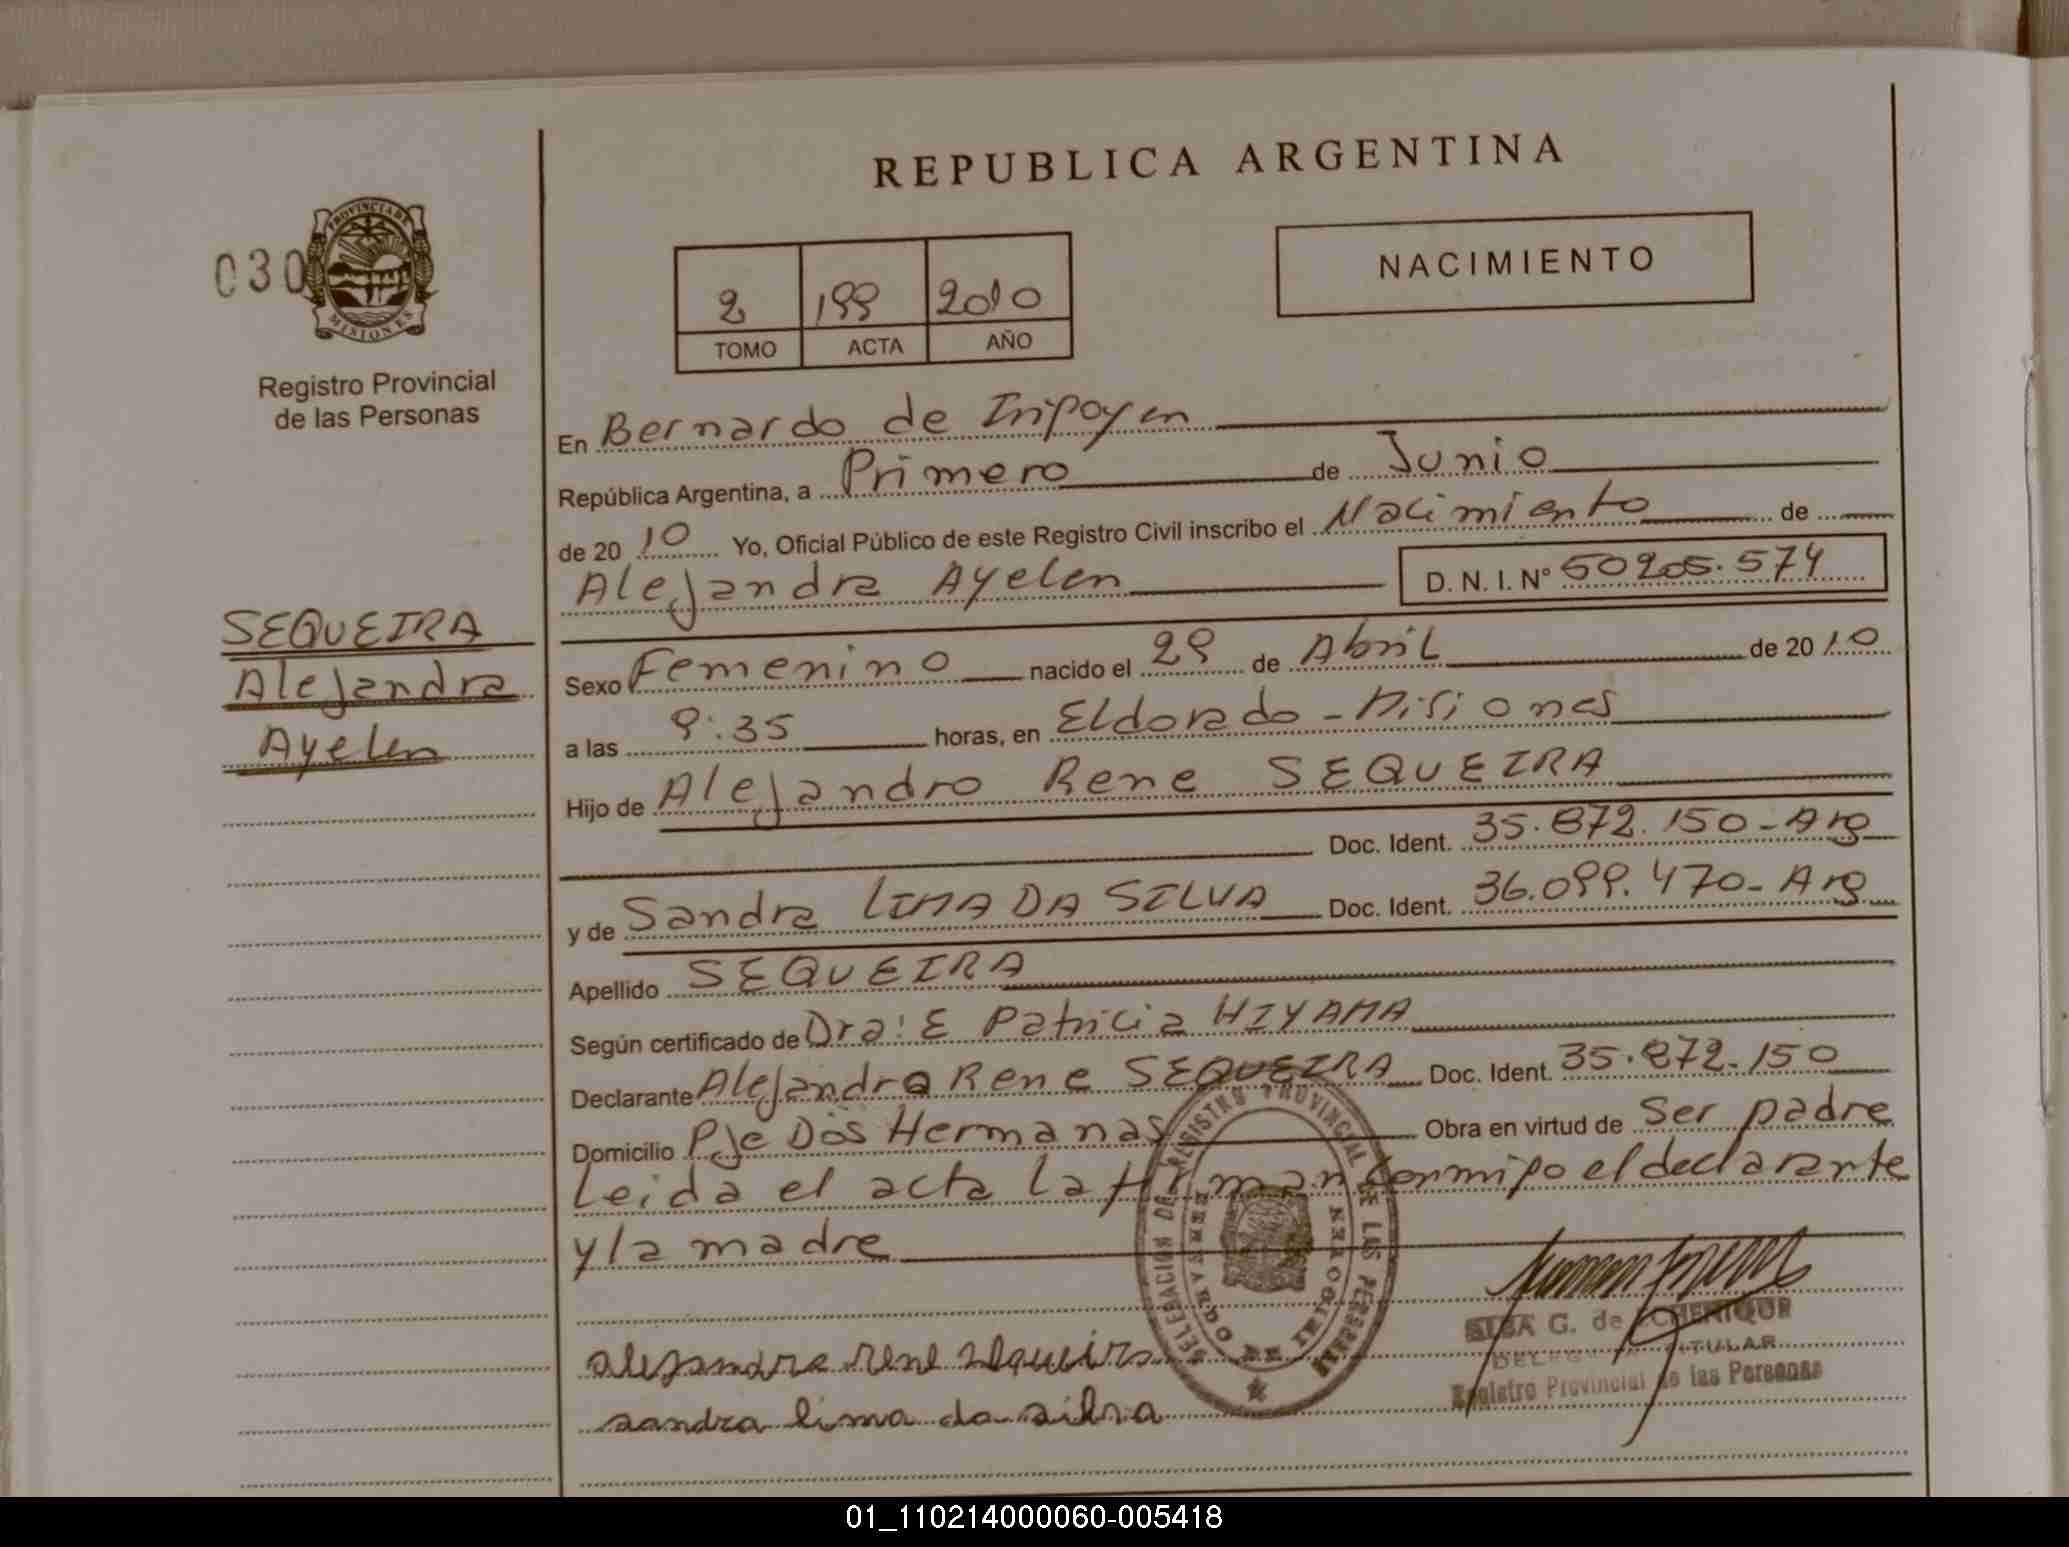 REPUBLICA ARGENTINA
030
PROVINCIA DE
MISIONES
Registro Provincial
de las Personas
2 199 2010
TOMO ACTA AÑO
NACIMIENTO
SEQUEIRA
Alejandra
Ayelen
En Bernardo de Irigoyen
República Argentina, a Primero de Junio
de 20 10 Yo, Oficial Público de este Registro Civil inscribo el Nacimiento de
Alejandra Ayelen D. N. I. Nº 50205.574
Sexo Femenino nacido el 29 de Abril de 20 10
a las 9:35 horas, en Eldorado - Misiones
Hijo de Alejandro Rene SEQUEIRA
Doc. Ident. 35.872.150 - Arg
y de Sandra LIMA DA SILVA Doc. Ident. 36.099.470 - Arg
Apellido SEQUEIRA
Según certificado de Dra: E Patricia HIYAMA
Declarante Alejandro Rene SEQUEIRA Doc. Ident. 35.872.150
Domicilio Pje Dos Hermanas Obra en virtud de Ser padre
Leida el acta la firman conmigo el declarante
y la madre
DELEGACION DE REGISTRO PROVINCIAL DE LAS PERSONAS
BERNARDO DE IRIGOYEN
alejandro rene sequeira
sandra lima da silva
G. de
TITULAR
Registro Provincial de las Personas
01_110214000060-005418